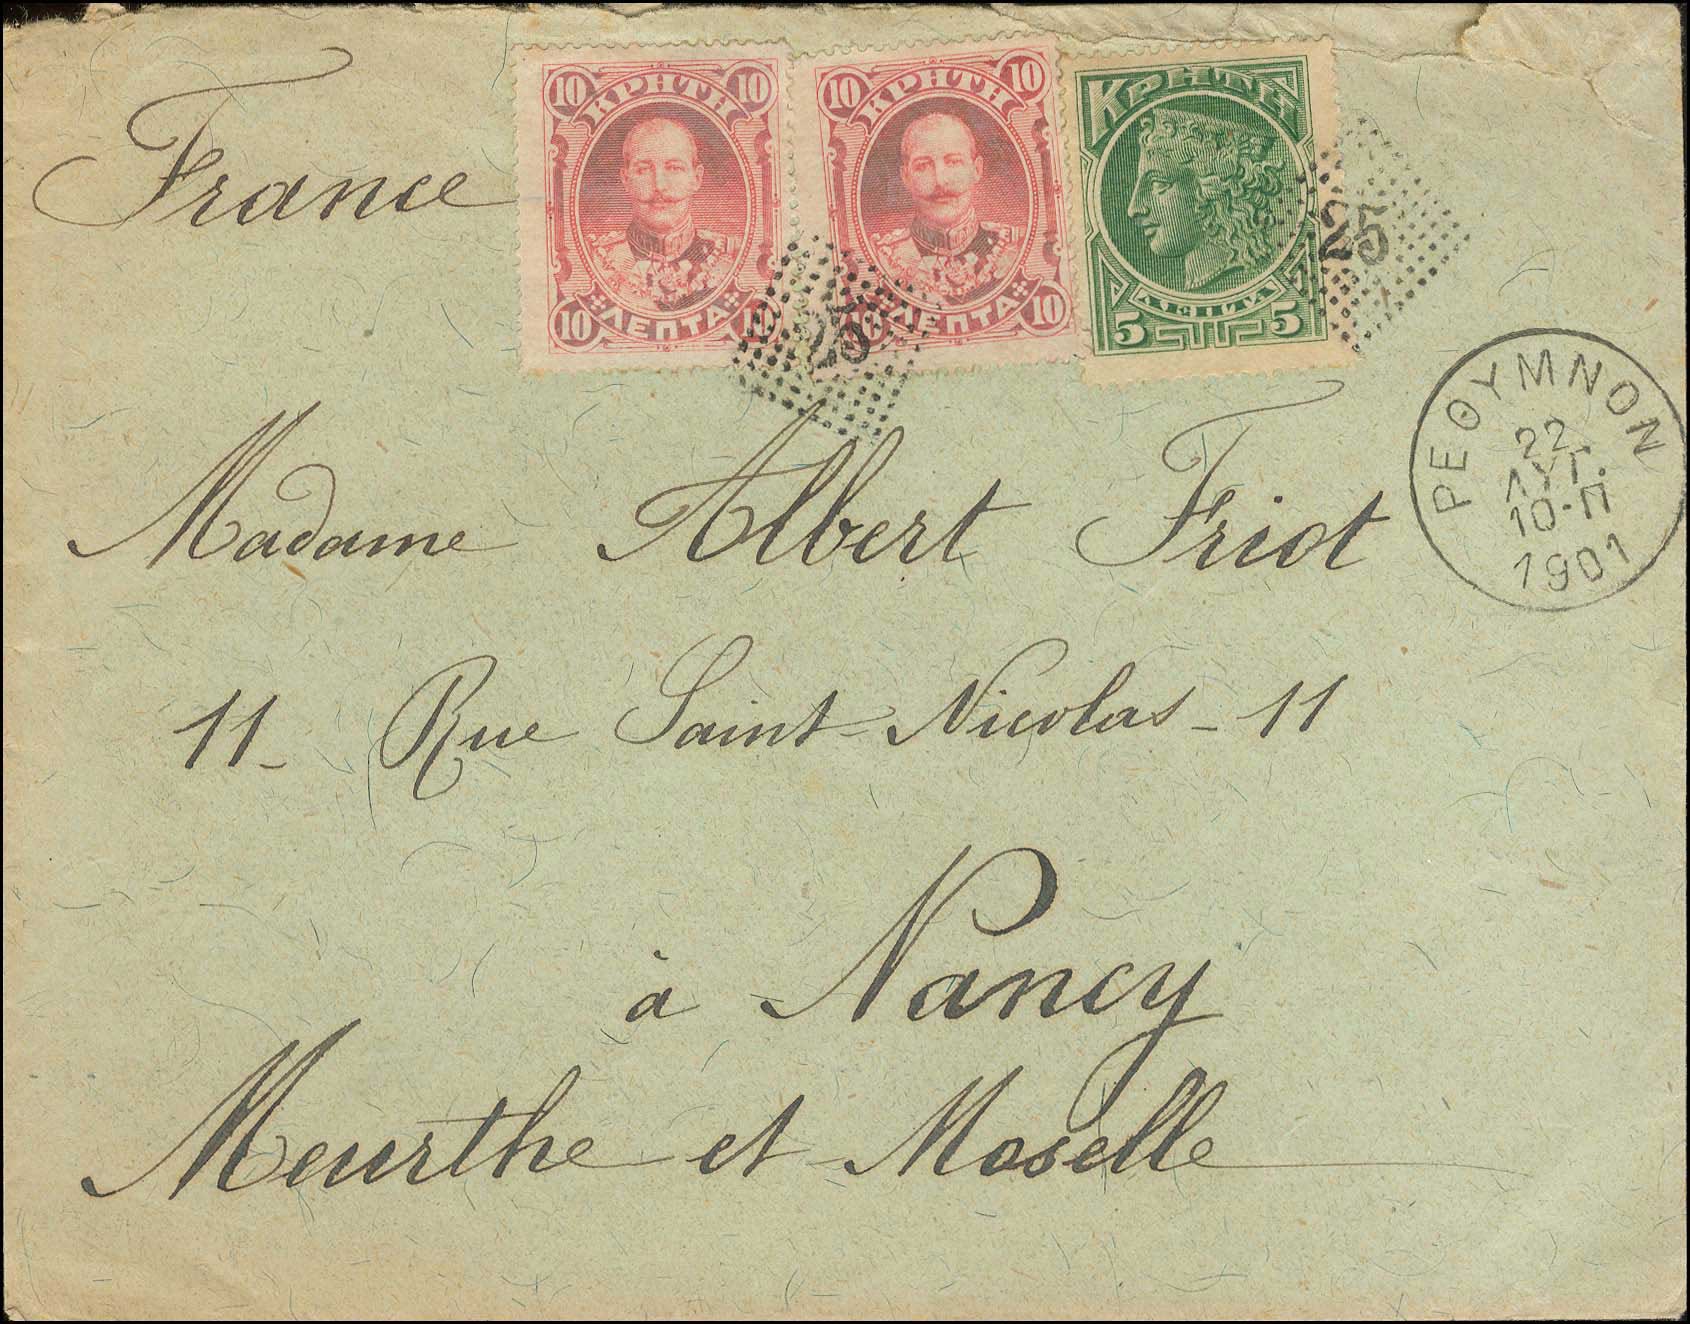 France
10 ΚΡΗΤΗ 10
10 ΛΕΠΤΑ 10
10 ΚΡΗΤΗ 10
10 ΛΕΠΤΑ 10
ΚΡΗΤΗ
5 ΛΕΠΤΑ 5
25
25
ΡΕΘΥΜΝΟΝ
22
ΑΥΓ.
10-Π
1901
Madame Albert Friot
11 - Rue Saint-Nicolas - 11
à Nancy
Meurthe et Moselle